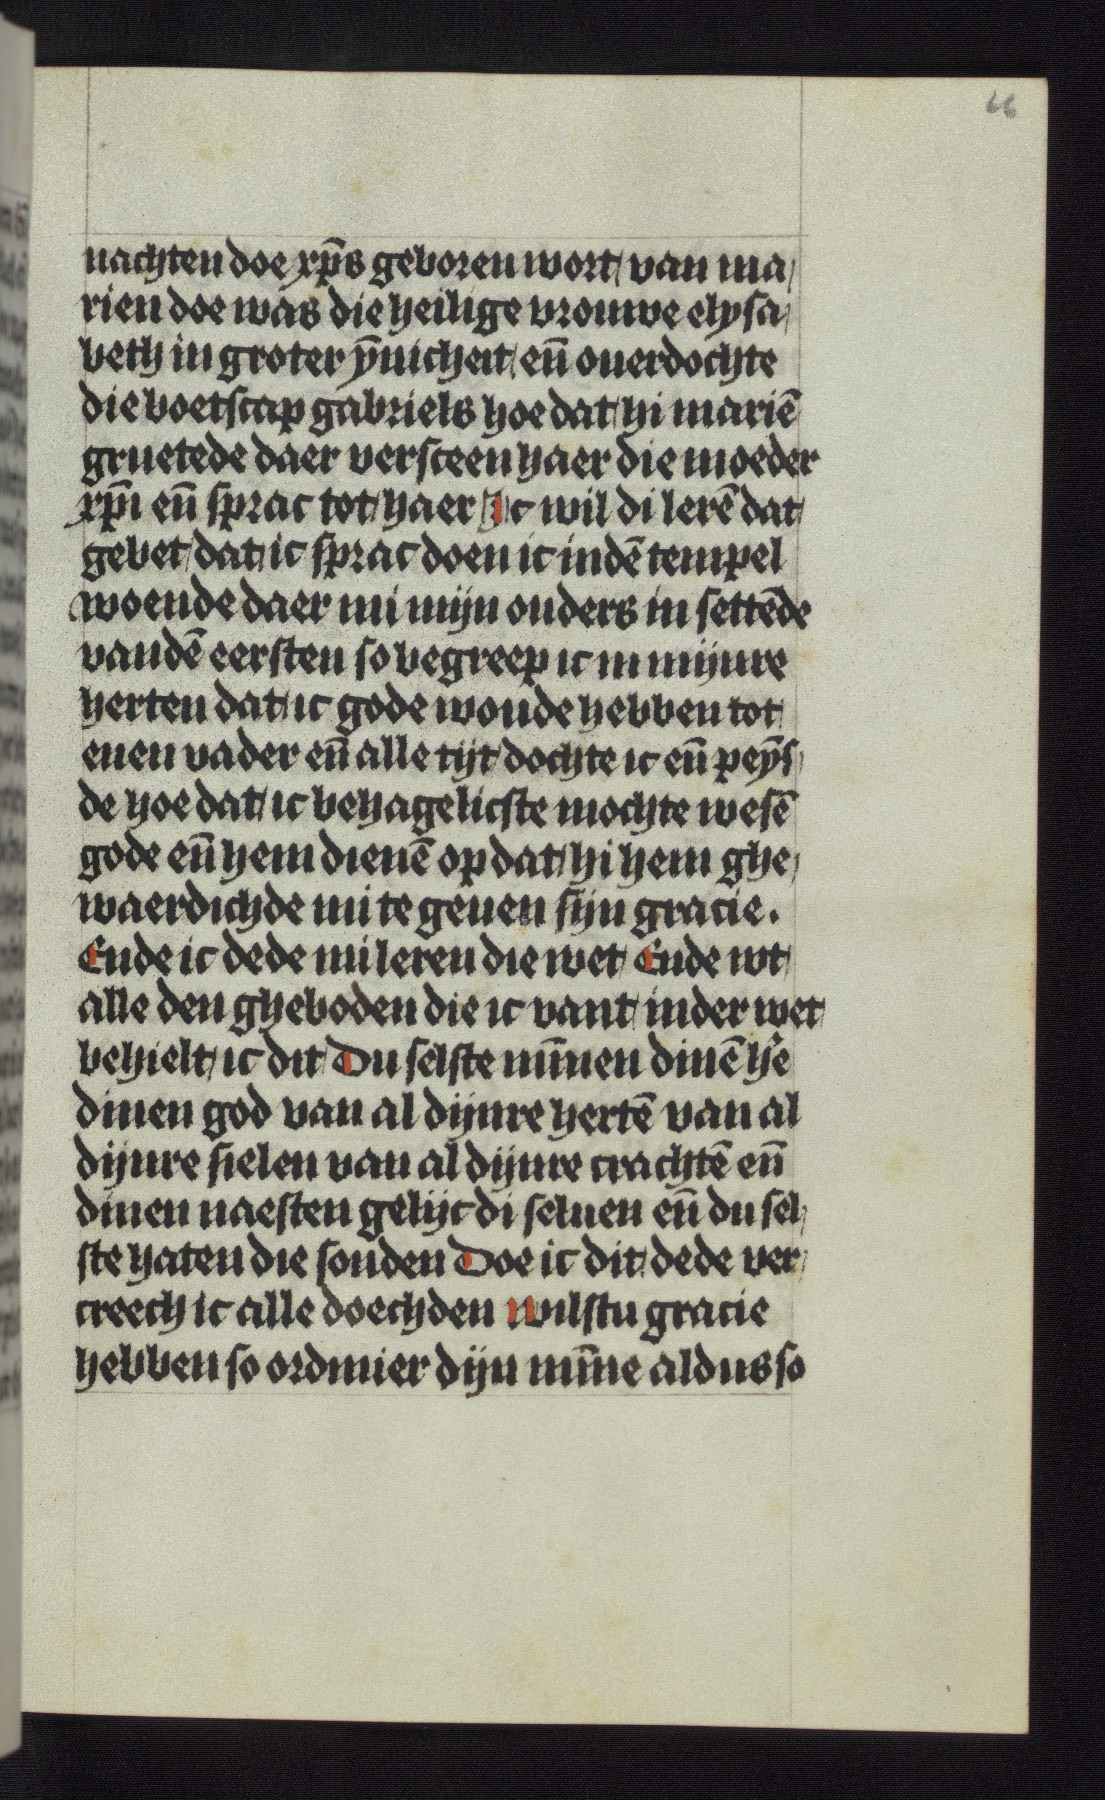 66
nachten doe xp̄s geboren wort/ van ma/
rien doe was die heilige vrouwe elysa/
beth in groter ȳnicheit/ eñ ouerdochte
die boetscap gabriels hoe dat hi mariē
gruetede daer versceen haer die moeder
xp̄i eñ sprac tot haer Ic wil di lerē dat
gebet/ dat ic sprac doen ic indē tempel
woende daer mi mijn ouders in settēde
vandē eersten so begreep ic in mijnre
herten dat ic gode woude hebben tot
enen vader eñ alle tijt dochte ic eñ peȳs/
de hoe dat ic behagelicste mochte wesē
gode eñ hem dienē op dat hi hem ghe/
waerdichde mi te geuen sijn gracie.
Ende ic dede mi leren die wet/ Ende wt
alle den gheboden die ic vant inder wet
behielt ic dit Du selste mīnen dinē hr̄e
dinen god van al dijnre hertē van al
dijnre sielen van al dijnre crachtē eñ
dinen naesten gelijc di seluen eñ du sel/
ste haten die sonden Doe ic dit dede ver/
creech ic alle doechden Wilstu gracie
hebben so ordinier dijn mīne aldus so